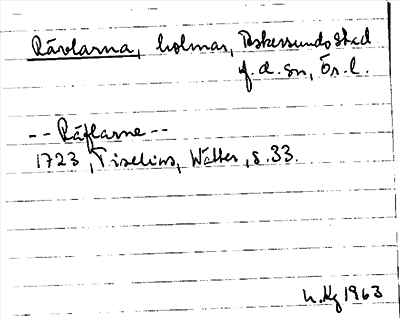 Rävlarna, holmar, Askersunds stad
f.d. sn, Ör.l.
-- Räflarne --
1723, Tiselius, Wätter, s.33.
1963